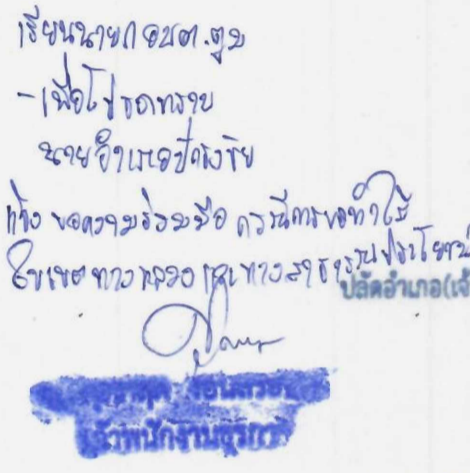 เรียนนายก อบต.ตูม
- เพื่อโปรดทราบ
นายอำเภอปักธงชัย
แจ้ง ขอความร่วมมือ กรณีการขอทำไม้
ในเขตทางหลวง และทางสาธารณประโยชน์
ปลัดอำเภอ(เจ้
เจ้าพนักงานธุรการ